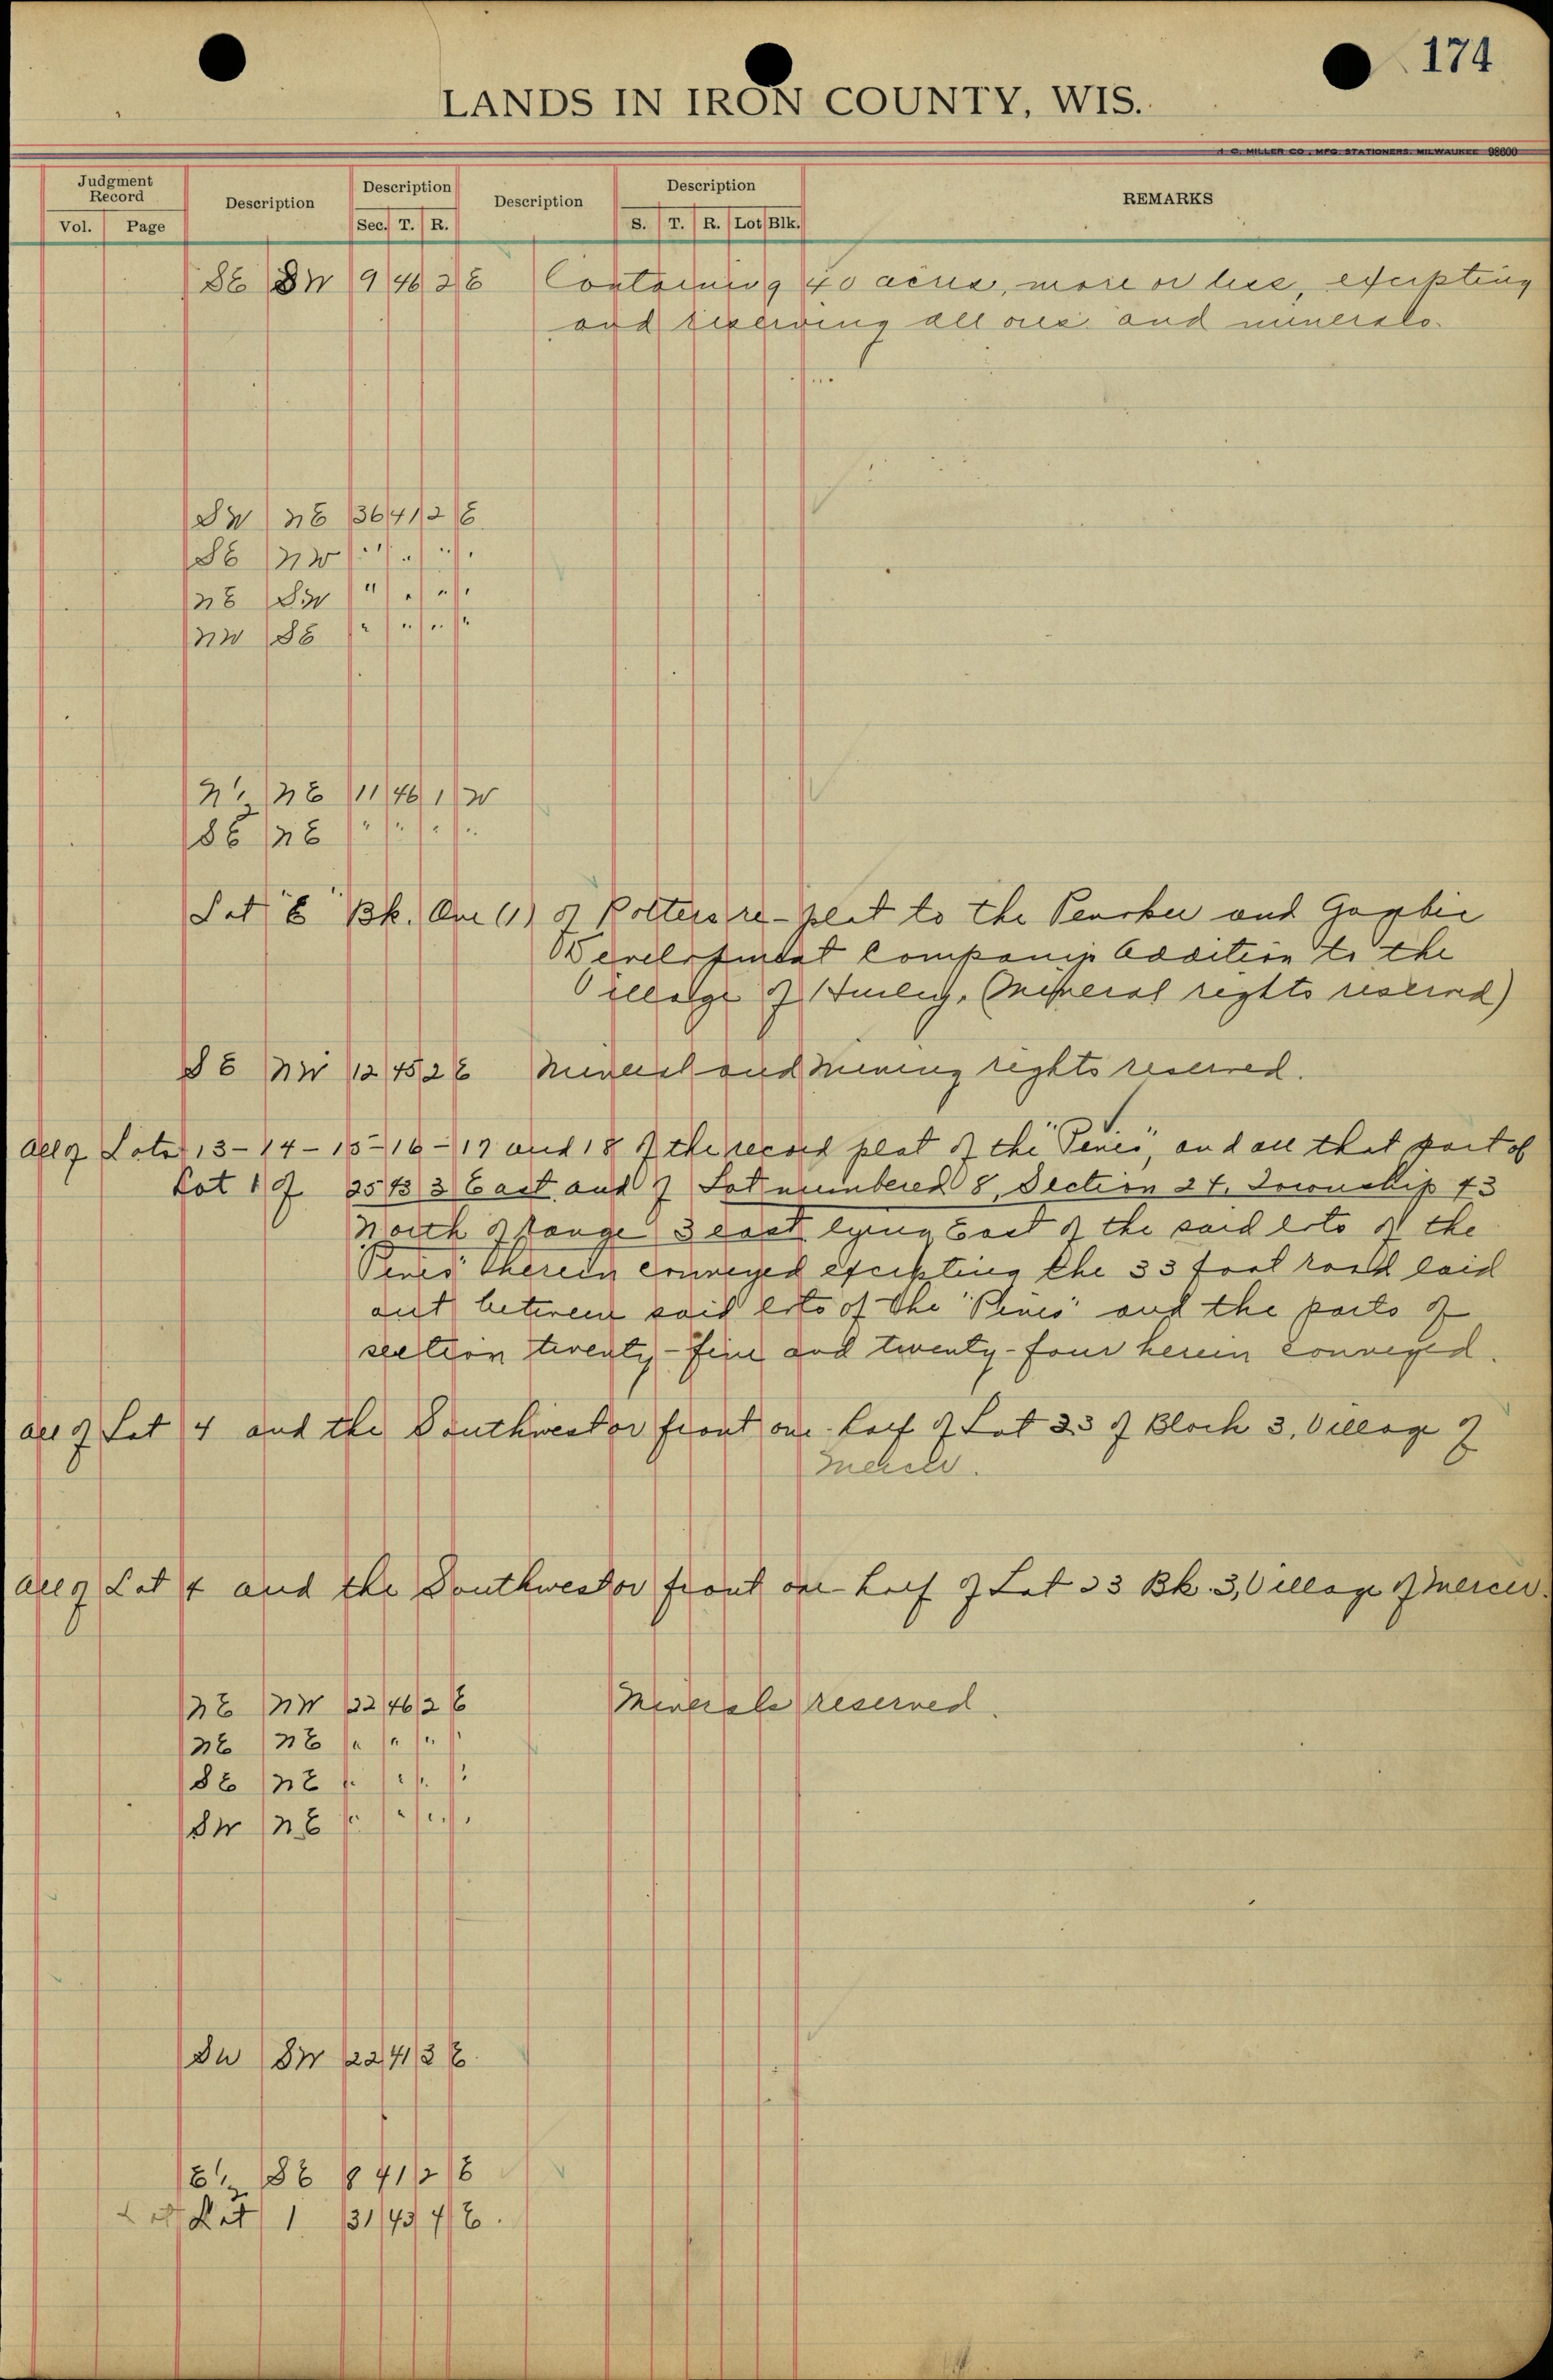 174
LANDS IN IRON COUNTY, WIS.
H. C. MILLER CO., MFG. STATIONERS, MILWAUKEE 98600
Judgment Record
Description
Description
Description
Description
REMARKS
Vol. Page
Sec. T. R.
S. T. R. Lot Blk.
SE SW 9 46 2 E Containing 40 acres, more or less, excepting
and reserving all ores and minerals.
SW NE 36 41 2 E
SE NW " " " "
NE SW " " " "
NW SE " " " "
N½ NE 11 46 1 W
SE NE " " " "
Lot "E" Bk. One (1) of Potters re-plat to the Penokee and Gogebic
Development Companys Addition to the
Village of Hurley. (Mineral rights reserved)
SE NW 12 45 2 E Mineral and Mining rights reserved.
All of Lots 13-14-15-16-17 and 18 of the record plat of the "Pines", and all that part of
Lot 1 of 25 43 3 East and of Lot numbered 8, Section 24, Township 43
North of Range 3 east lying East of the said lots of the
Pines" therein conveyed excepting the 33 foot road laid
out between said lots of the "Pines" and the parts of
section twenty-five and twenty-four herein conveyed.
All of Lot 4 and the Southwest or front one-half of Lot 23 of Block 3, Village of
Mercer.
All of Lot 4 and the Southwest or front one-half of Lot 23 Bk. 3, Village of Mercer.
NE NW 22 46 2 E Minerals reserved.
NE NE " " " "
SE NE " " " "
SW NE " " " "
SW SW 22 41 3 E.
E½ SE 8 41 2 E
Lot 1 31 43 4 E.